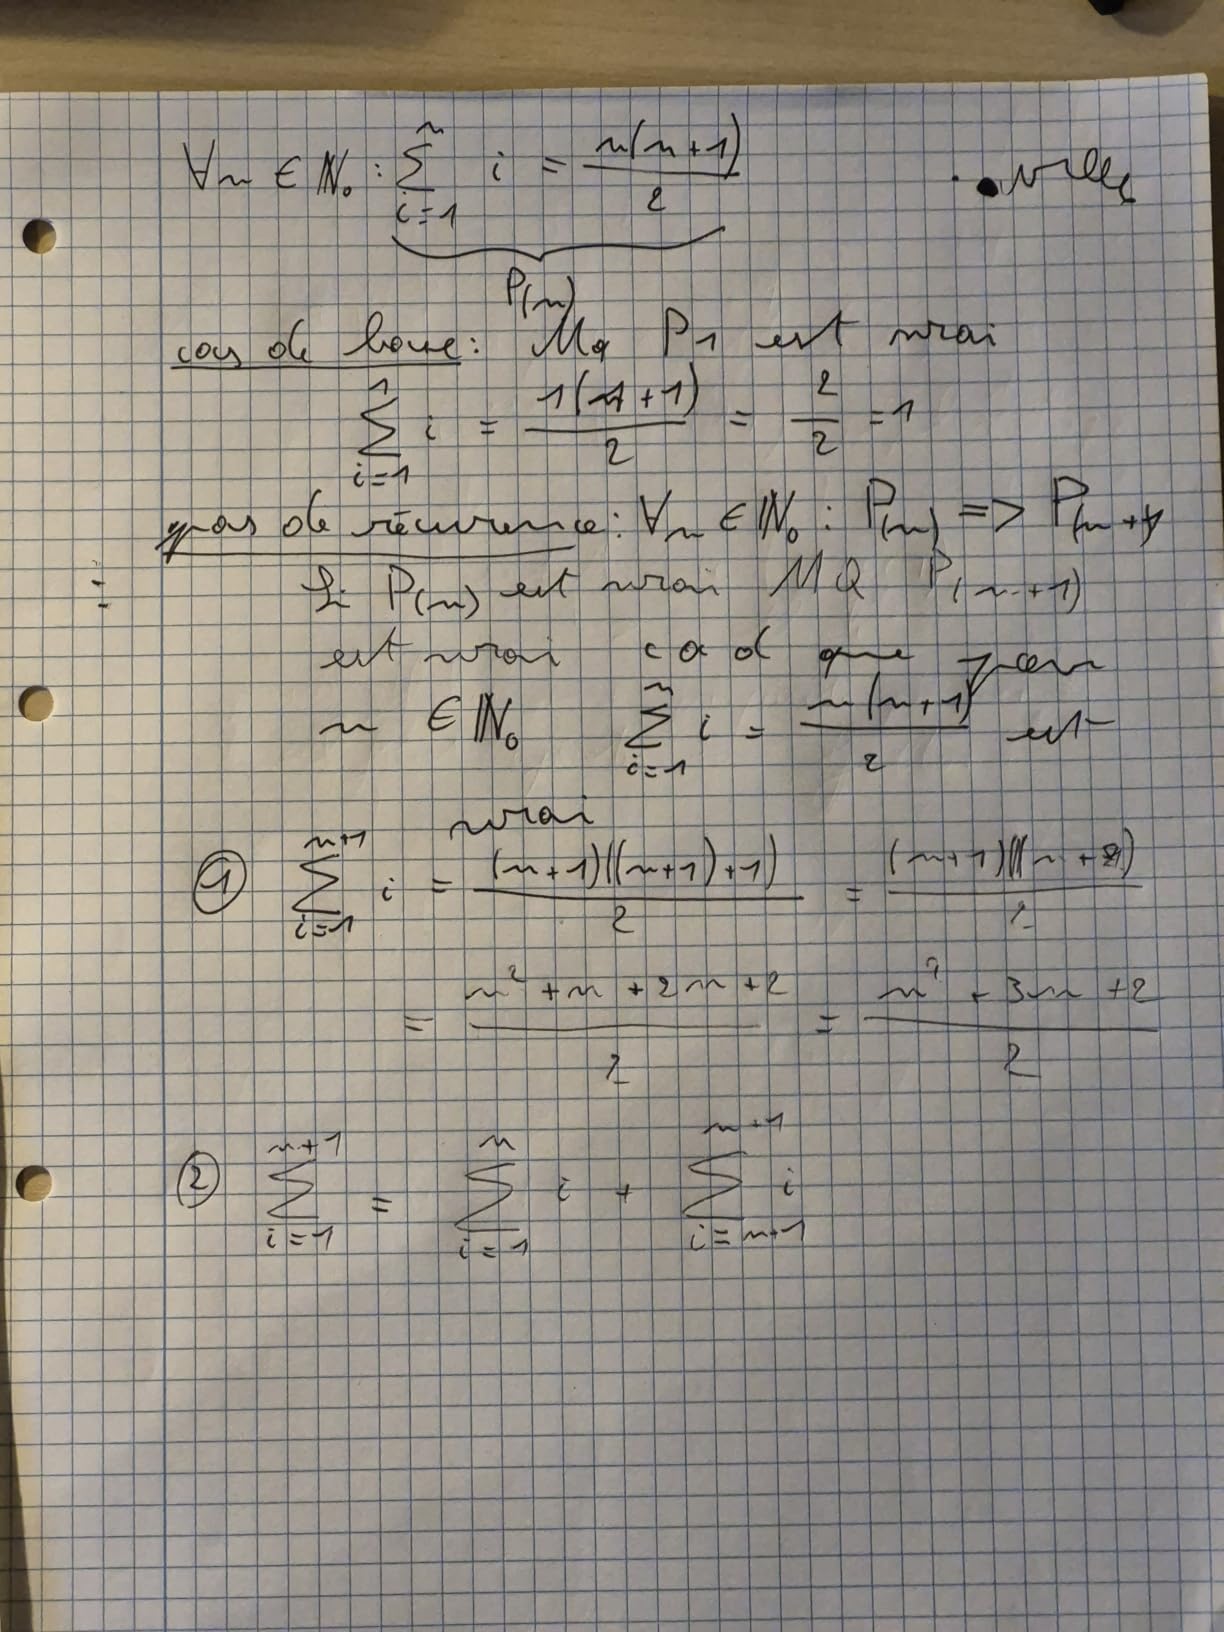 ∀n ∈ ℕ₀ : ∑_{i=1}^{n} i = n(n+1)/2
P(n)
cas de base : Mq P1 est vrai
∑_{i=1}^{1} i = 1(1+1)/2 = 2/2 = 1
pas de récurrence : ∀n ∈ ℕ₀ : P(n) => P(n+1)
Si P(n) est vrai MQ P(n+1)
est vrai cad que pour
n ∈ ℕ₀ ∑_{i=1}^{n} i = n(n+1)/2 est
vrai
① ∑_{i=1}^{n+1} i = (n+1)((n+1)+1)/2 = (n+1)((n+2)/2
= n²+n+2n+2/2 = n²+3n+2/2
② ∑_{i=1}^{n+1} = ∑_{i=1}^{n} i + ∑_{i=n+1}^{n+1} i